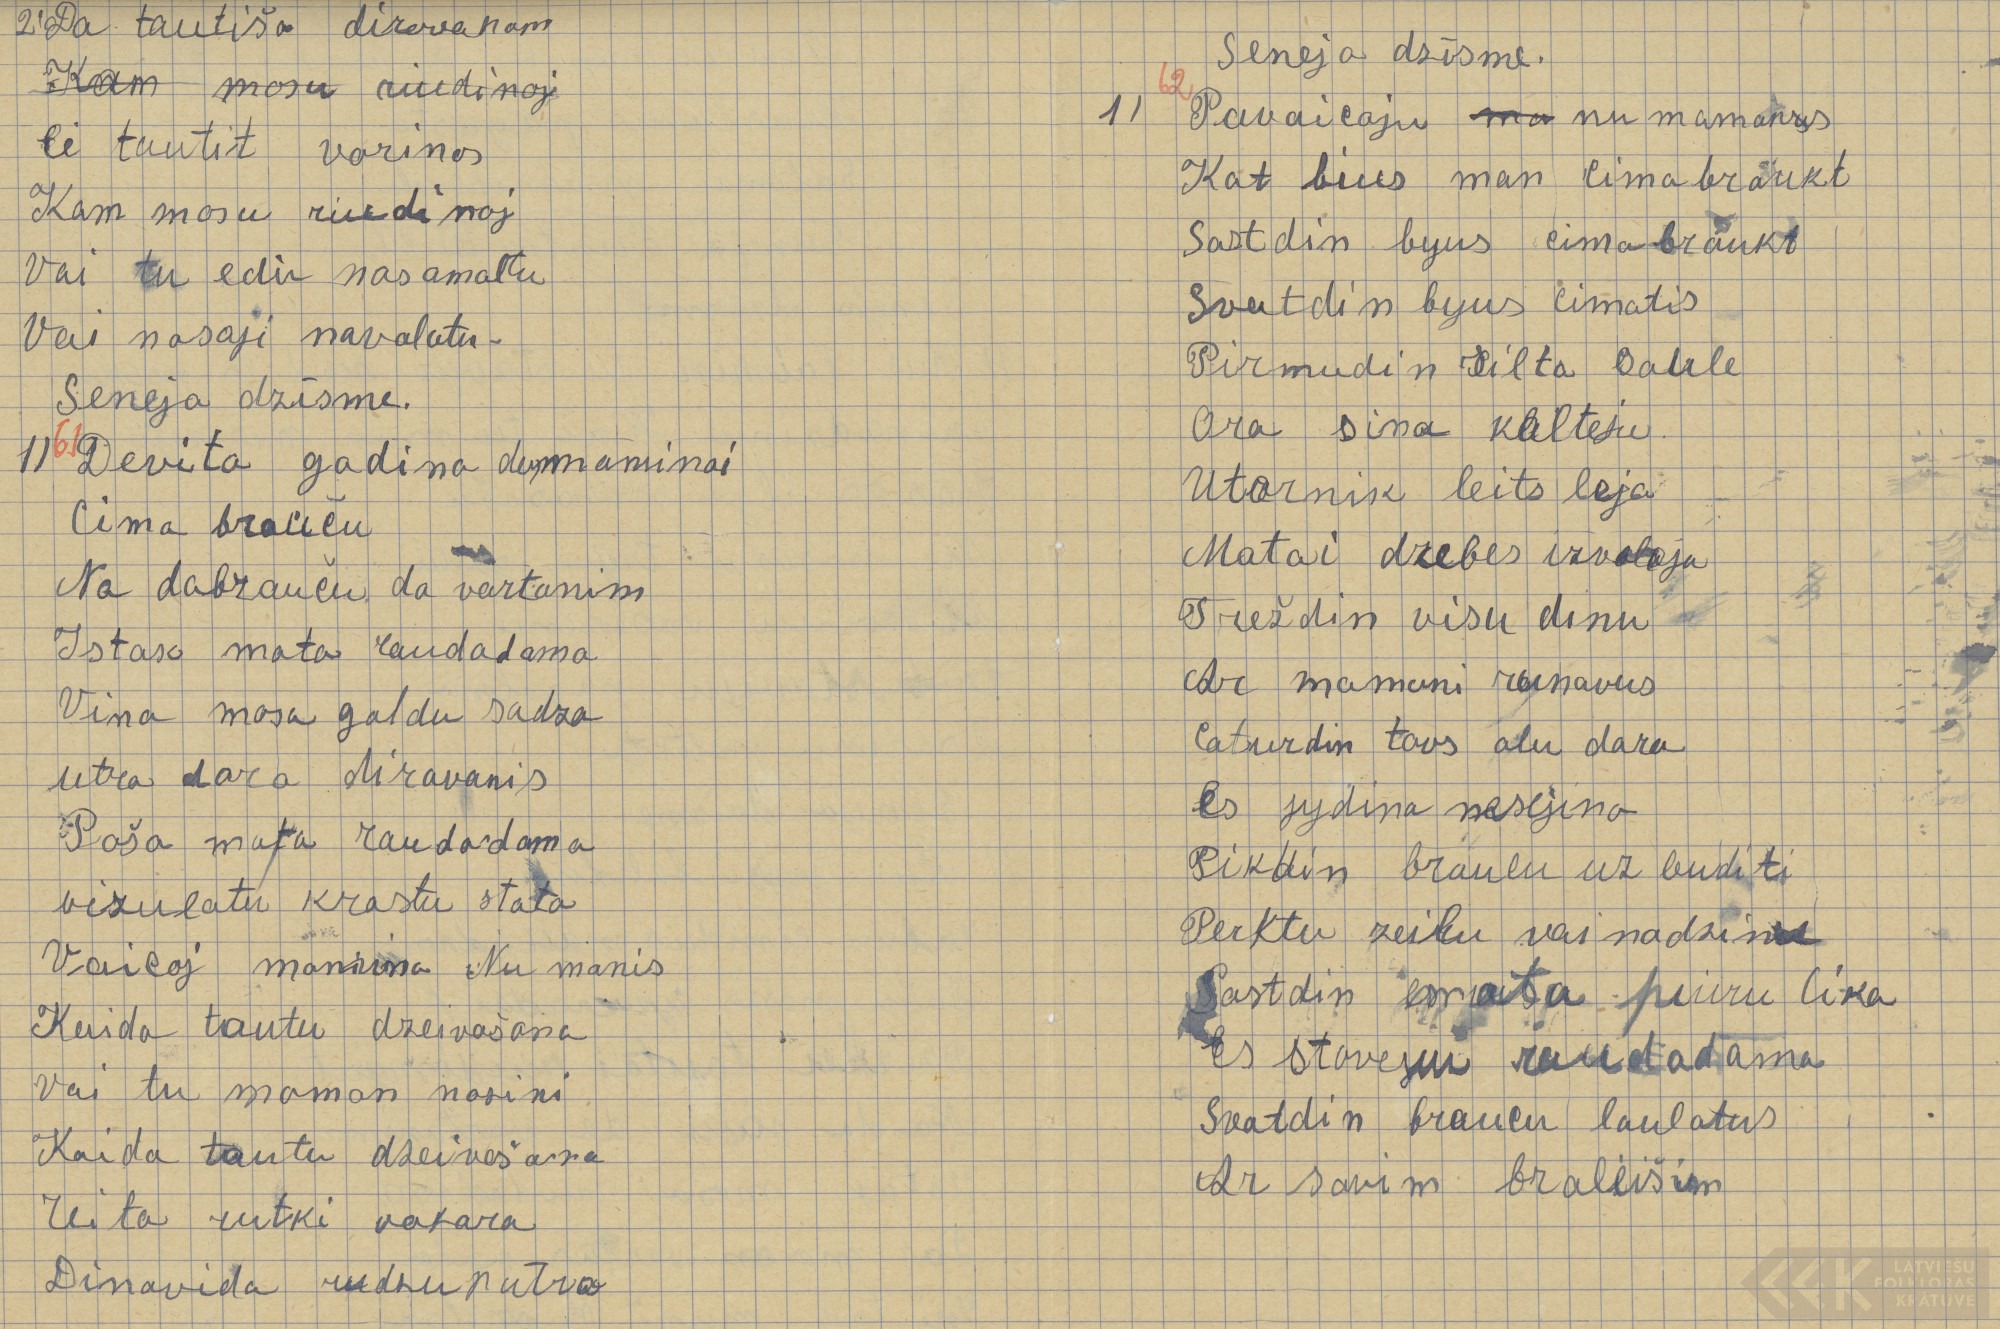 2) Da tautiša dirovanam
Kam mosu riudinoj
Ci tautit varinos
Kam mosu riudinoj
Vai tu edir nasamoltu
Vai nasaji navalatu.
Seneja dzīsme.
1) 61 Devita gadina dumaminai
Cima braucu
Na dabrauču da vartanim
Istak mata raudadama
Vina mosa galdu sadza
utra dara diravanis
Poša mata raudadama
vizulatu krastu stata
Vaicoj Nu manis
Kaida tautu dzeivošana
Vai tu maman nazini
Kaida tautu dzeivošana
Reita rutki vakara
Dinavida rudzu putra
Seneja dzīsme.
1) 62 Pavaicaju ma nu mamanus
Kat bius man cima braukt
Sastdin byus cima braukt
Svatdin byus cimatis
Pirmudin silta saule
Ora sina kalteju
Utornik leits leja
Matai drebes izvalaja
Trešdin visu dinu
Ar mamani runavus
Caturdin tavs alu dara
Es jydina nesejina
Pikdin braucu uz luditi
Perktu zeilu vainadzinu
Sastdin mata puuru lika
Es staveju raudadama
Svatdin braucu laulatus
Ar savim braleišim
LATVIEŠU
FOLKLORAS
KRĀTUVE